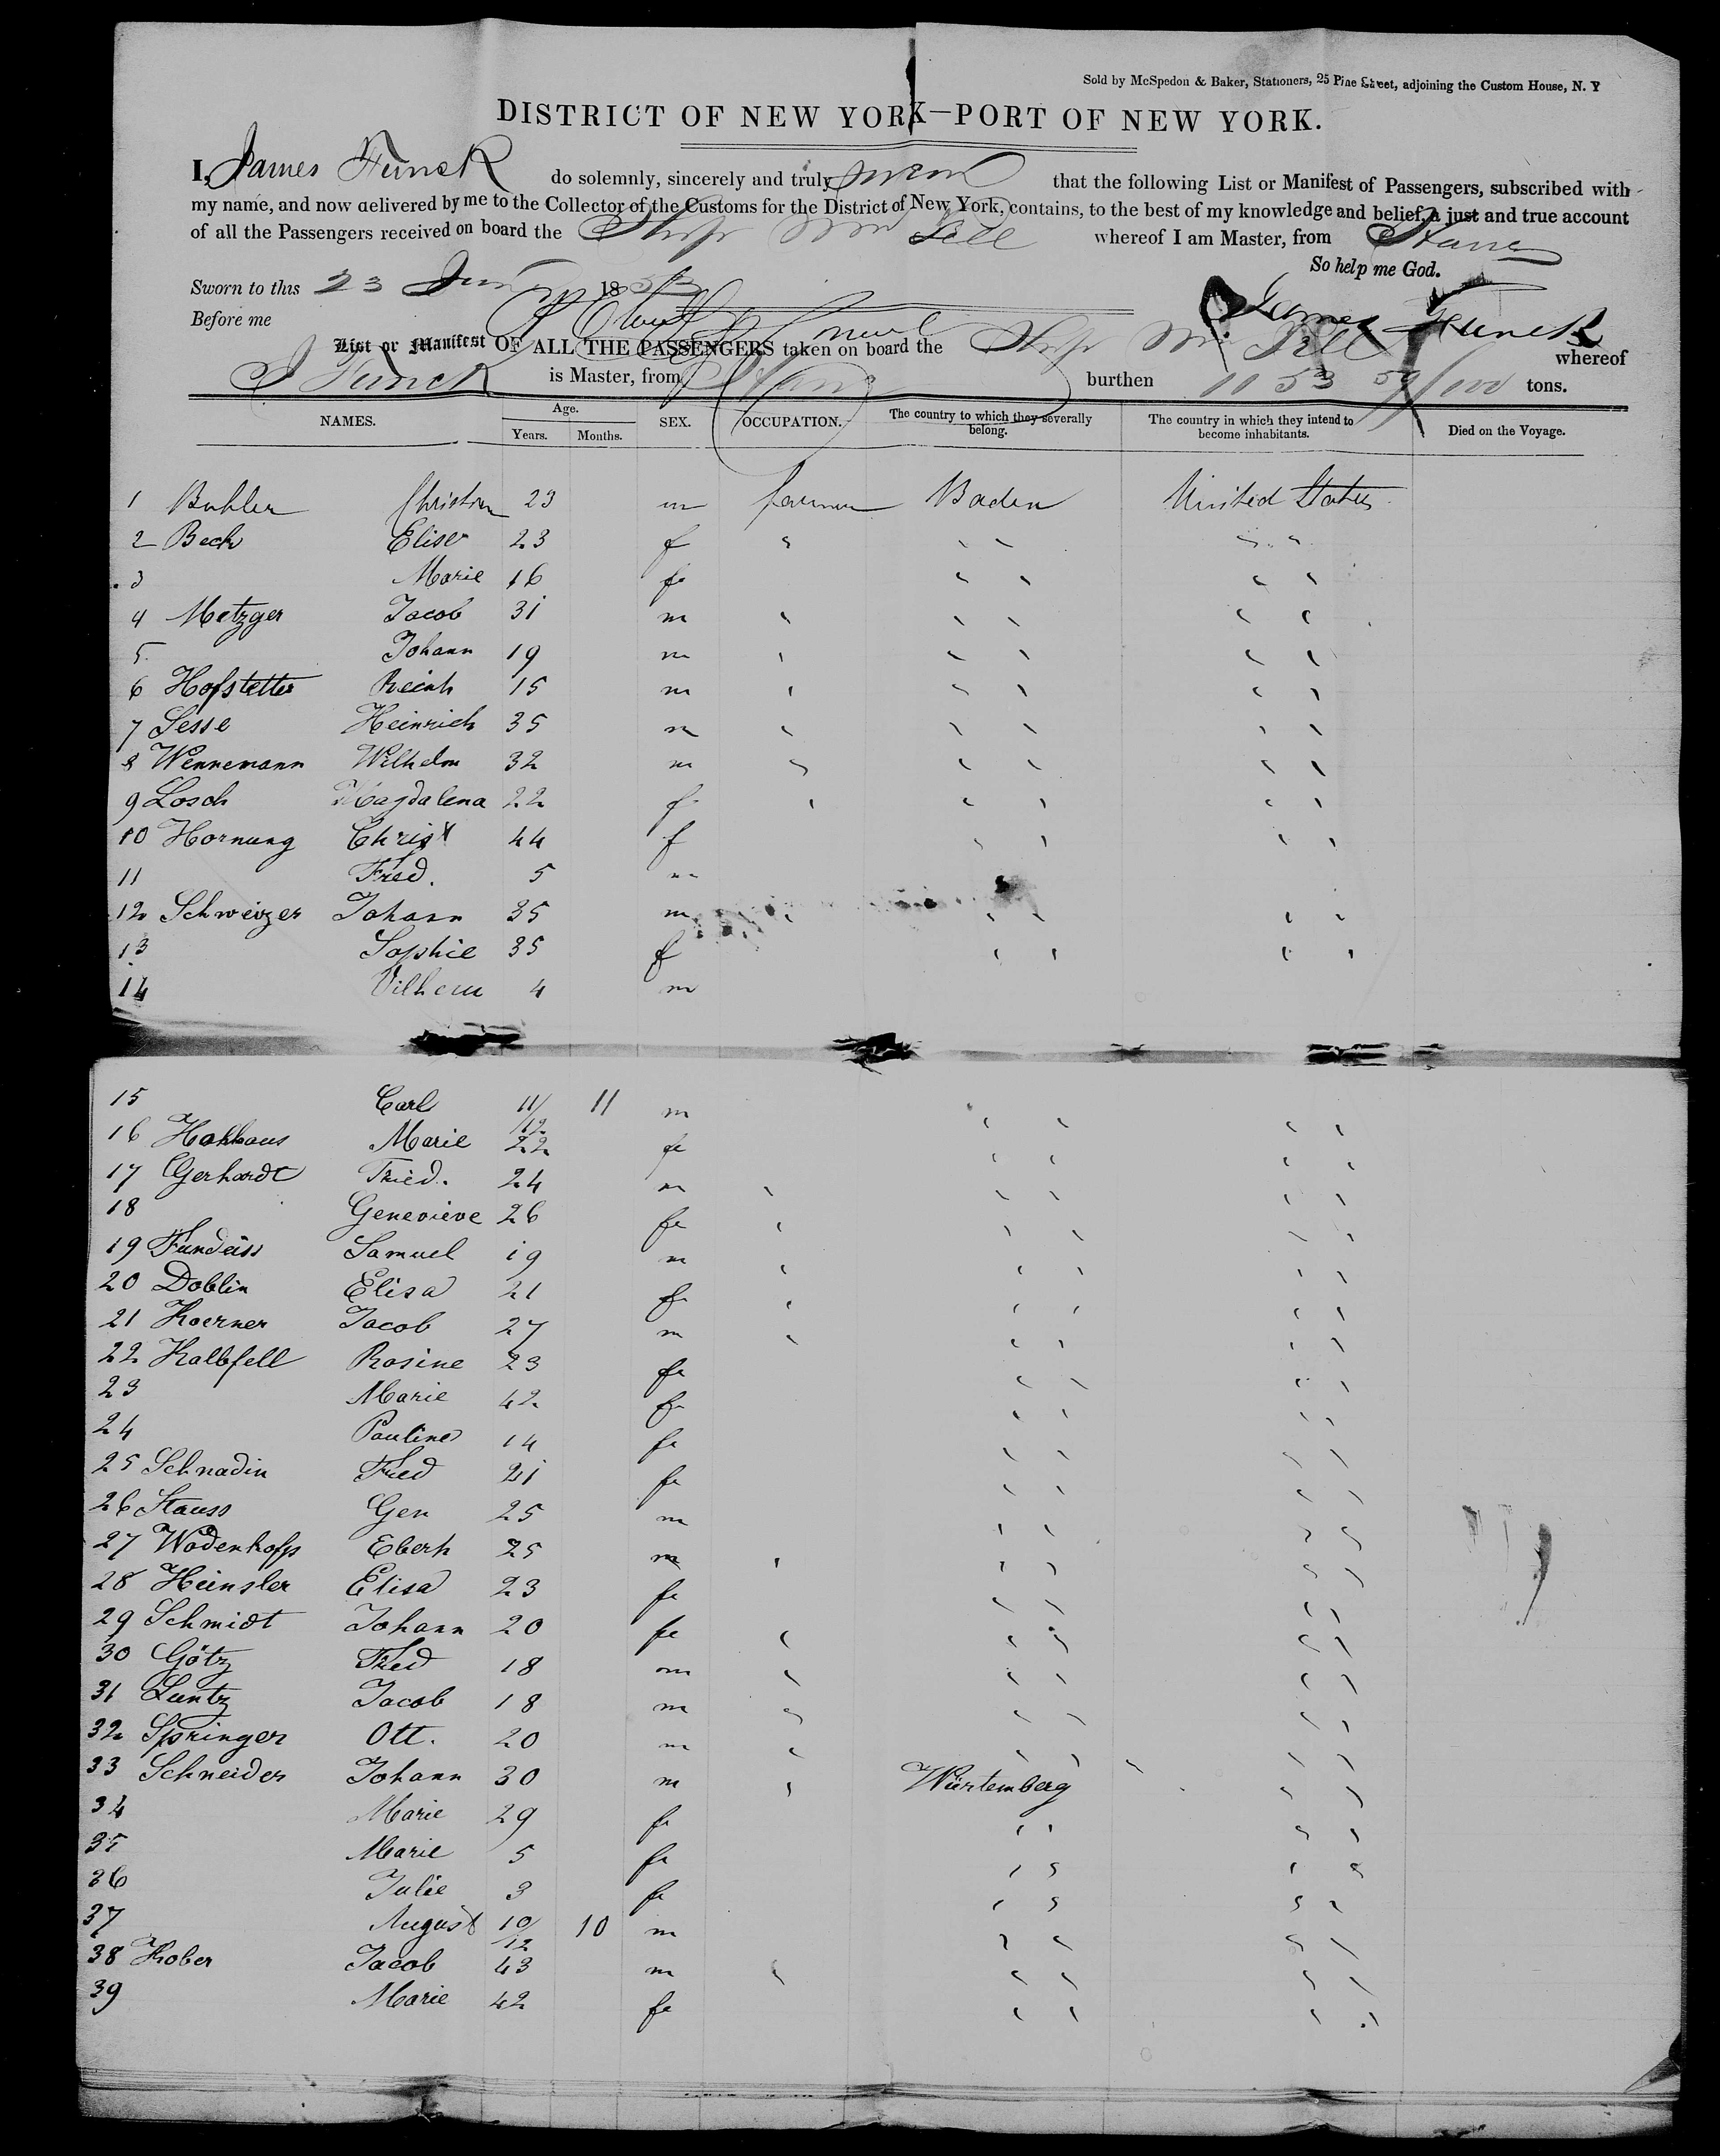 Sold by McSpedon & Baker, Stationers, 25 Pine Street, adjoining the Custom House, N. Y
DISTRICT OF NEW YORK—PORT OF NEW YORK.
I, James Funck do solemnly, sincerely and truly swear that the following List or Manifest of Passengers, subscribed with
my name, and now delivered by me to the Collector of the Customs for the District of New York, contains, to the best of my knowledge and belief, a just and true account
of all the Passengers received on board the Ship Wm Tell whereof I am Master, from Havre
So help me God.
Sworn to this 23 June 1853
Before me James Funck
List or Manifest OF ALL THE PASSENGERS taken on board the Ship Wm Tell whereof
J Funck is Master, from Havre burthen 1153 59/100 tons.
NAMES. Age. Years. Months. SEX. OCCUPATION. The country to which they severally belong. The country in which they intend to become inhabitants. Died on the Voyage.
1 Buhler Christian 23 m farmer Baden United States
2 Beck Elise 23 f " " " " "
3 Marie 16 fe " " " "
4 Metzger Jacob 31 m " " " " "
5 Johann 19 m " " " " "
6 Hofstetter Reinh 15 m " " " " "
7 Sesse Heinrich 35 m " " " " "
8 Wennemann Wilhelm 32 m " " " " "
9 Losch Magdalena 22 f " " " " "
10 Hornung Christ 44 f " " " "
11 Fred. 5 m
12 Schweizer Johann 35 m " " " " "
13 Sophie 35 f " " " "
14 Vilhem 4 m
15 Carl 11/12 11 m " " " "
16 Hahhaus Marie 22 fe " " " "
17 Gerhardt Fried. 24 m " " " " "
18 Genevieve 26 fe " " " " "
19 Fundeiss Samuel 19 m " " " " "
20 Doblin Elisa 21 f " " " " "
21 Koerner Jacob 27 m " " " " "
22 Kalbfell Rosine 23 fe " " " "
23 Marie 42 fe " " " "
24 Pauline 14 fe " " " "
25 Schnadin Fried 21 fe " " " "
26 Stauss Gen 25 m " " " "
27 Wodenhoff Eberh 25 m " " " " "
28 Heinsler Elisa 23 fe " " " "
29 Schmidt Johann 20 fe " " " " "
30 Götz Fried 18 m " " " " "
31 Luntz Jacob 18 m " " " " "
32 Springer Ott. 20 m " " " " "
33 Schneider Johann 30 m " Würtemberg " "
34 Marie 29 fe " " " "
35 Marie 5 fe " " " "
36 Julie 3 fe " " " "
37 August 10/12 10 m " " " "
38 Kober Jacob 43 m " " " " "
39 Marie 42 fe " " " "